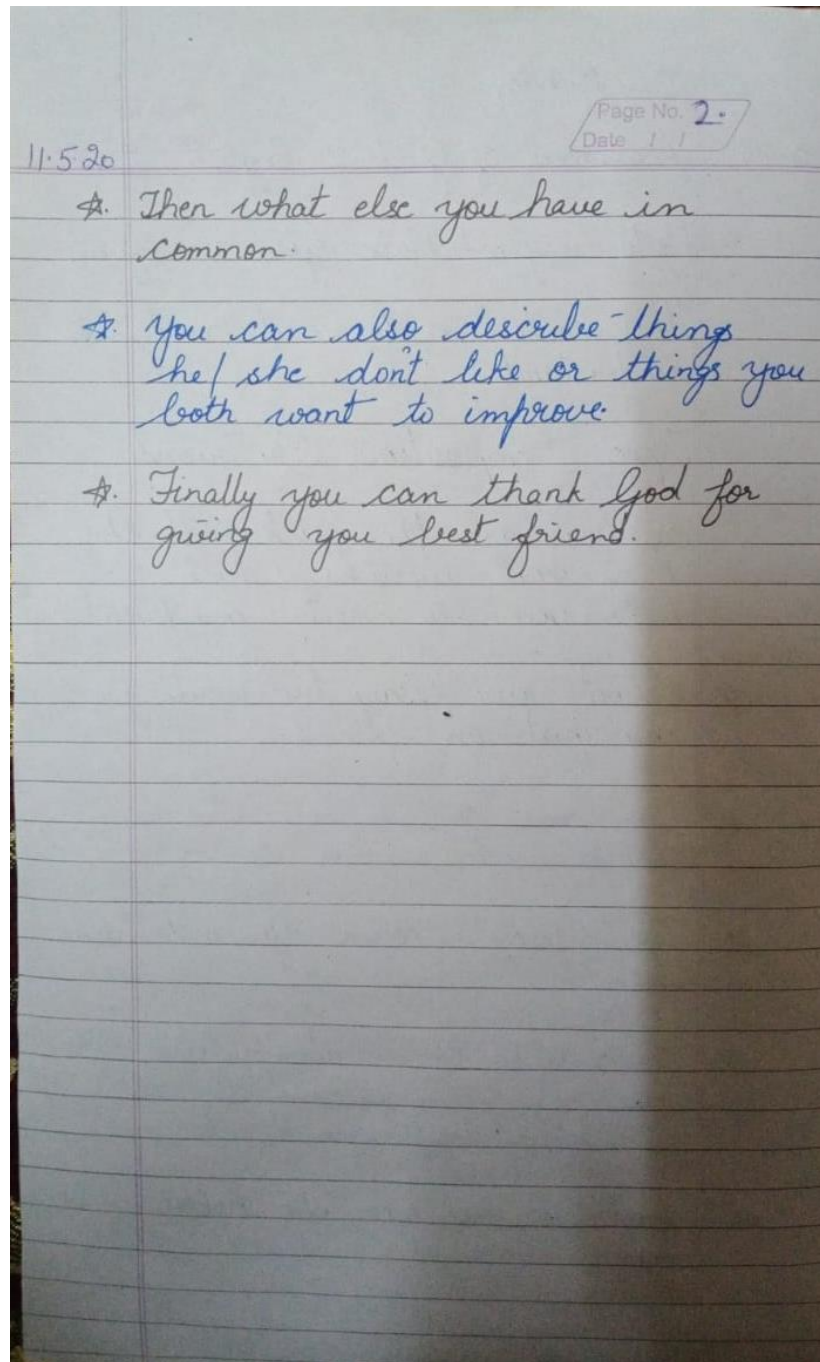 Page No. 2.
Date / /
11.5.20
☆. Then what else you have in
common.
☆. You can also describe things
he/ she don't like or things you
both want to improve.
☆. Finally you can thank God for
giving you best friend.